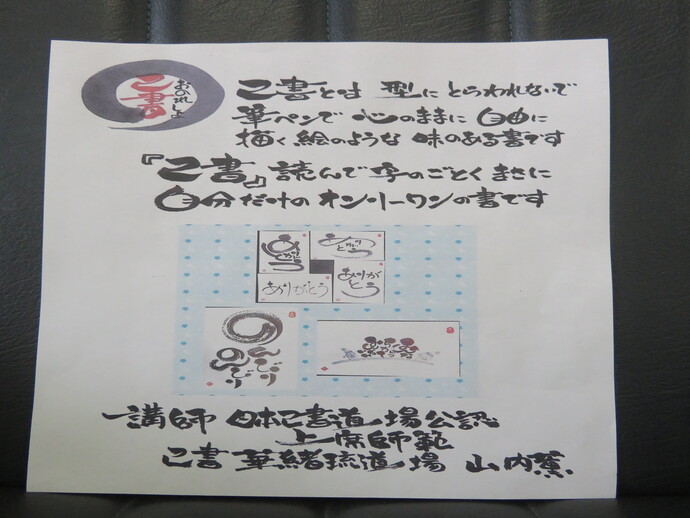 おのれしょ
己書
己書とは 型に とらわれないで
筆ペンで 心のままに 自由に
描く絵のような 味のある書です
『己書』読んで字のごとく まさに
自分だけの オンリーワンの書です
ありがとう
ありがとう
ありがとう
ありがとう
のんびり
のんびり
講師 日本己書道場公認
上席師範
己書 華緒琉道場 山内薫